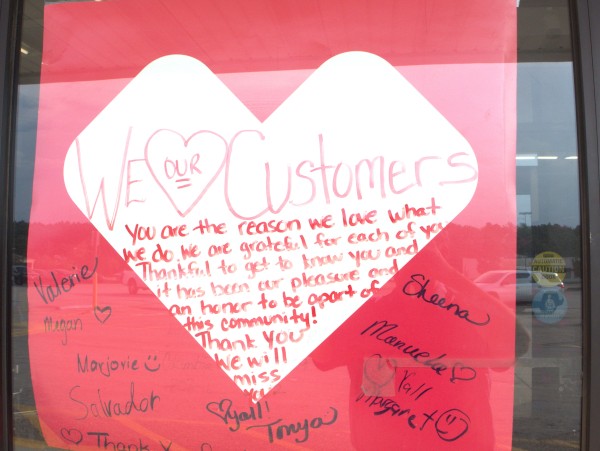 We our Customers
You are the reason we love what
we do. We are grateful for each of you
Thankful to get to know you and
it has been our pleasure and
an honor to be apart of
this community!
Thank You
We will
miss
Valerie
Megan
Marjorie
Salvador
Thank
yall!
Tonya
Sheena
Manuela
Yall
Margaret